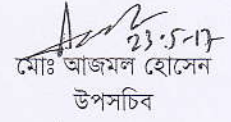 23.5.17
মোঃ আজমল হোসেন
উপসচিব